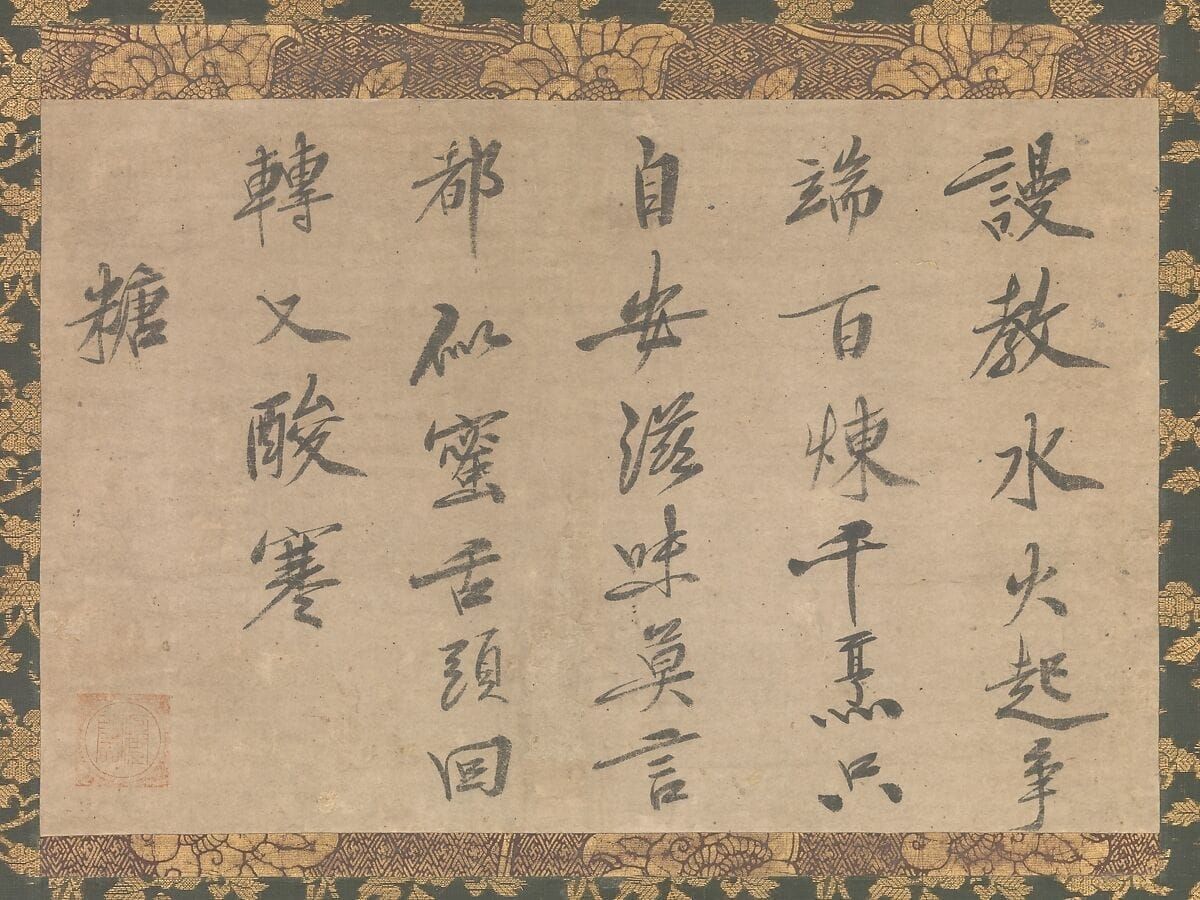 謾教水火起争
端百煉千烹只
自安滋味莫言
都似蜜舌頭回
轉又酸寒
糖